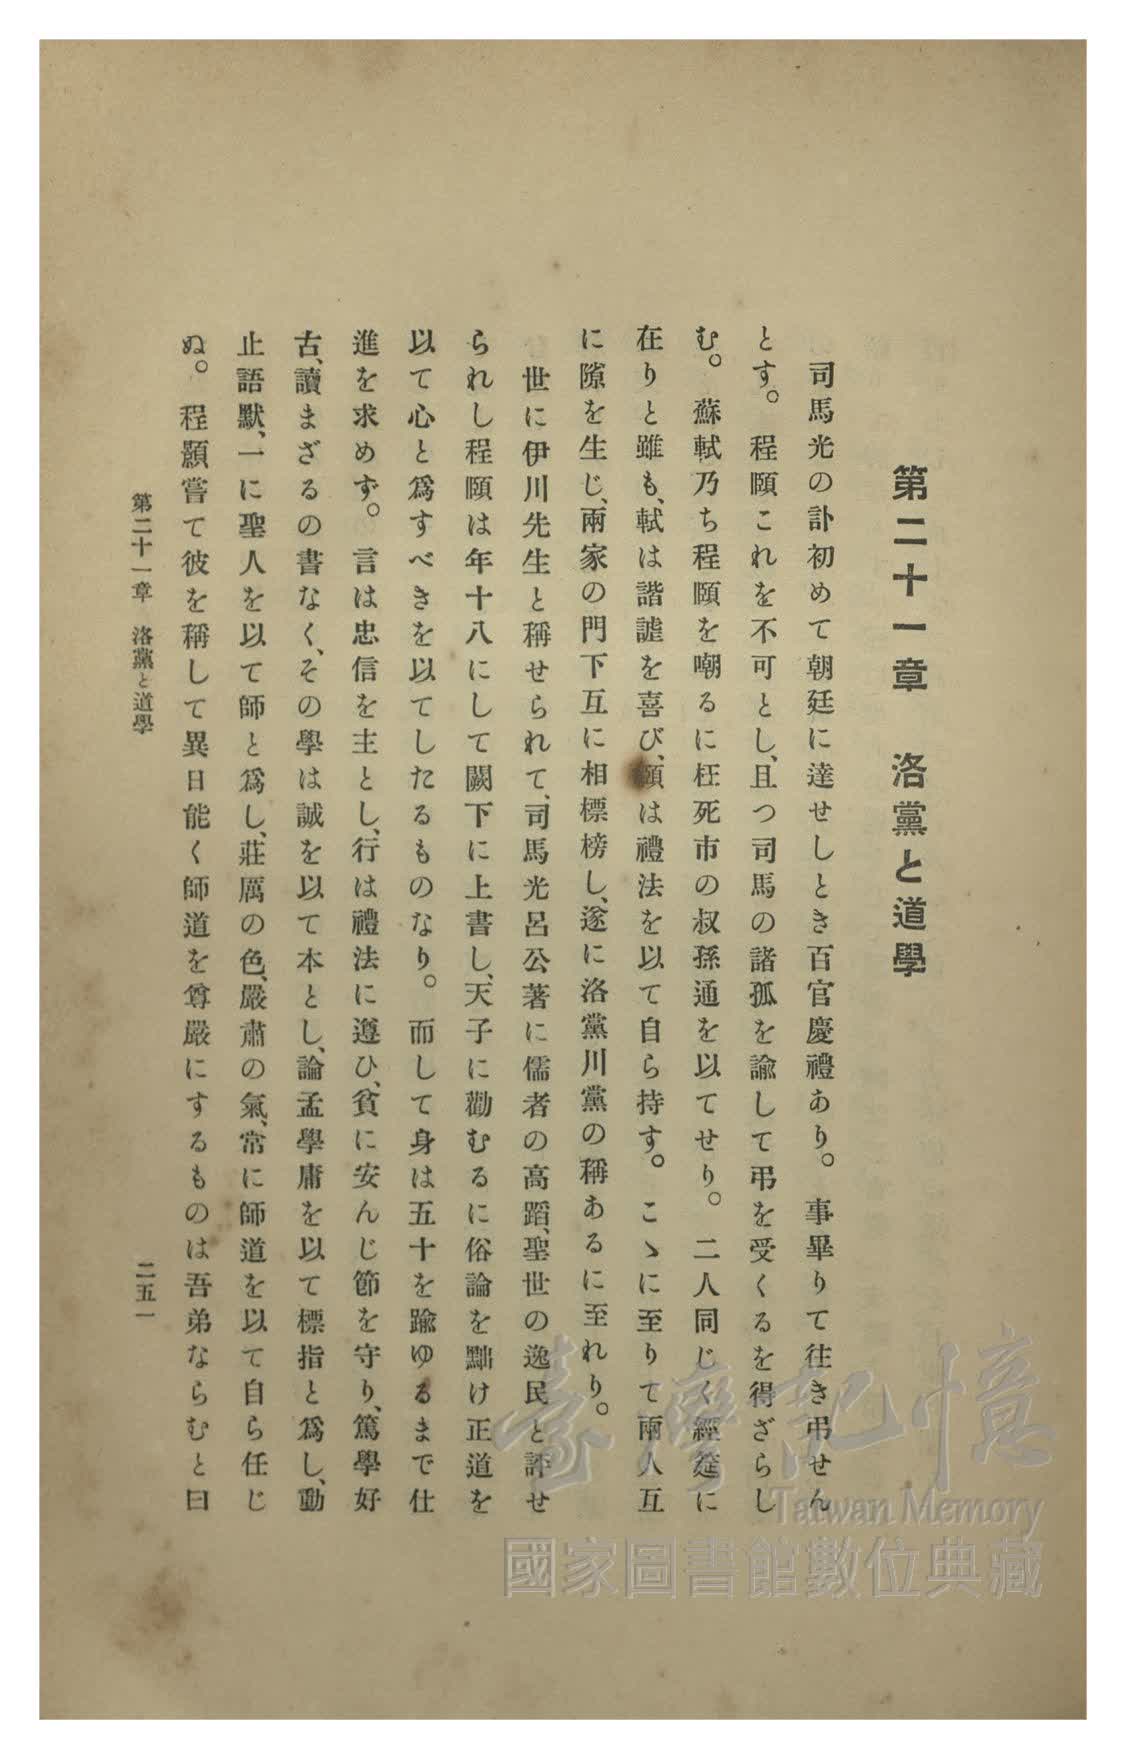 第二十一章　洛黨と道學
司馬光の訃初めて朝廷に達せしとき百官慶禮あり。事畢りて往き弔せん
とす。程頤これを不可とし、且つ司馬の諸孤を諭して弔を受くるを得ざらし
む。蘇軾乃ち程頤を嘲るに枉死市の叔孫通を以てせり。二人同じく經筵に
在りと雖も、軾は諧謔を喜び、頤は禮法を以て自ら持す。こゝに至りて兩人互
に隙を生じ、兩家の門下互に相標榜し、遂に洛黨川黨の稱あるに至れり。
世に伊川先生と稱せられて、司馬光呂公著に儒者の高蹈、聖世の逸民と評せ
られし程頤は年十八にして闕下に上書し、天子に勸むるに俗論を黜け正道を
以て心と爲すべきを以てしたるものなり。而して身は五十を踰ゆるまで仕
進を求めず。言は忠信を主とし、行は禮法に遵ひ、貧に安んじ節を守り、篤學好
古、讀まざるの書なく、その學は誠を以て本とし、論孟學庸を以て標指と爲し、動
止語默、一に聖人を以て師と爲し、莊厲の色、嚴肅の氣、常に師道を以て自ら任じ
ぬ。程顥嘗て彼を稱して異日能く師道を尊嚴にするものは吾弟ならむと曰
第二十一章　洛黨と道學
二五一
臺灣記憶
Taiwan Memory
國家圖書館數位典藏